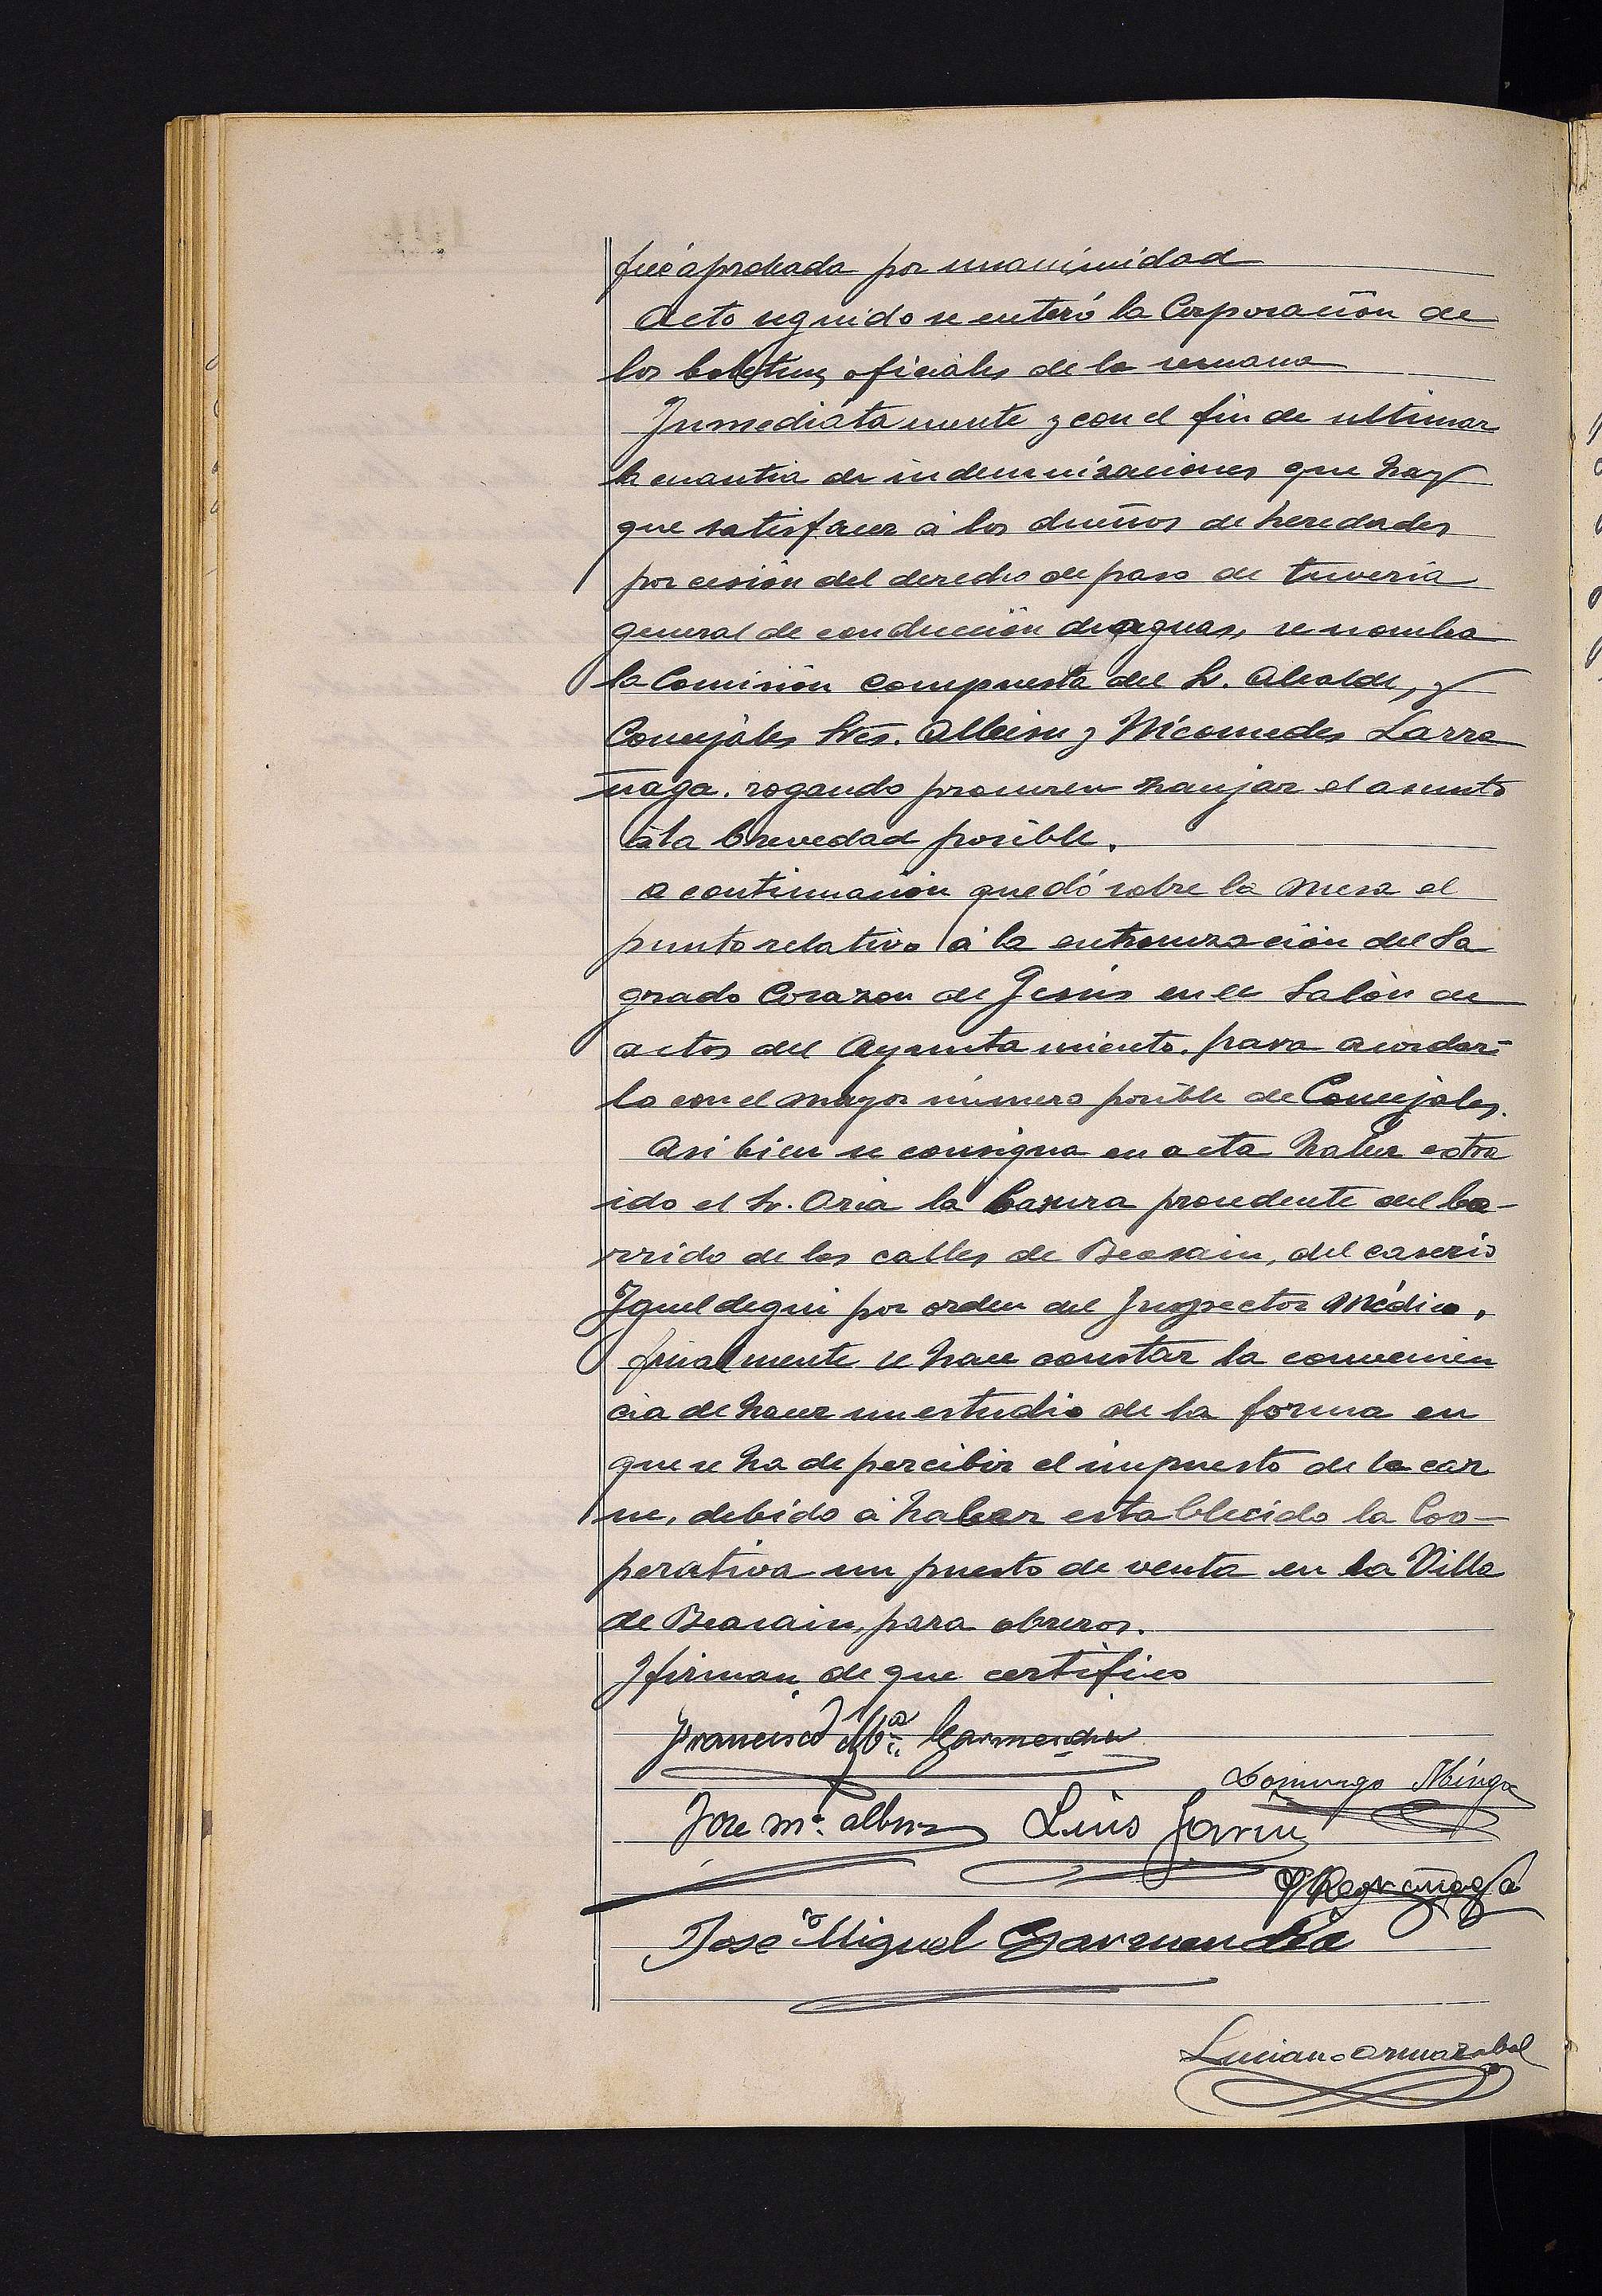 fué aprobada por unanimidad
Acto seguido se enteró la Corporación de
los boletines oficiales de la semana
Inmediatamente y con el fin de ultimar
la cuantia de indemnizaciones que hay
que satisfacer á los dueños de heredades
por cesión del derecho de paso de tuveria
general de conducción de aguas, se nombra
la Comisión compuesta del Sr. Alcalde, y
Concejales Sres. Albisu y Nicomedes Larra
ñaga. rogando procuren zanjar el asunto
á la brevedad posible.
A continuación quedó sobre la mesa el
punto relativo á la entronización del Sa
grado Corazon de Jesús en el Salón de
actos del Ayuntamiento. para acordar-
lo con el mayor número posible de Concejales.
Asi bien se consigna en acta haber extra
ido el Sr. Oria la basura procedente del ba-
rrido de las calles de Beasain, del caserio
Igueldegui por orden del Inspector Médico,
finalmente se hace constar la convenien
cia de hacer un estudio de la forma en
que se ha de percibir el impuesto de la car
ne, debido á haber establecido la Coo-
perativa un puesto de venta en la Villa
de Beasain, para obreros.
Y firman, de que certifico
Francisco Mª Garmendia
Domingo
Jose Mª Albisu Luis
José Miguel Garmendia
Luciano Ormazabal